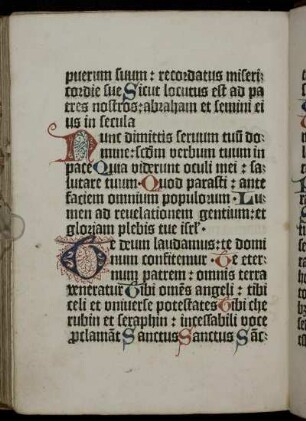 puerum suum : recordatus miseri-
cordie sue Sicut locutus est ad pa
tres nostros: abraham et semini ei
us in secula
Nunc dimittis seruum tuū do-
mine: scdm̄ verbum tuum in
pace Quia viderunt oculi mei : sa-
lutare tuum · Quod parasti : ante
faciem omnium populorum · Lu-
men ad reuelationem gentium: et
gloriam plebis tue isrl' ·
Te deum laudamus: te domi
num confitemur · Te eter-
num patrem : omnis terra
veneratur Tibi omēs angeli : tibi
celi et vniuerse potestates Tibi che
rubin et seraphin : incessabili voce
proclamāt Sanctus Sanctus Sāc-